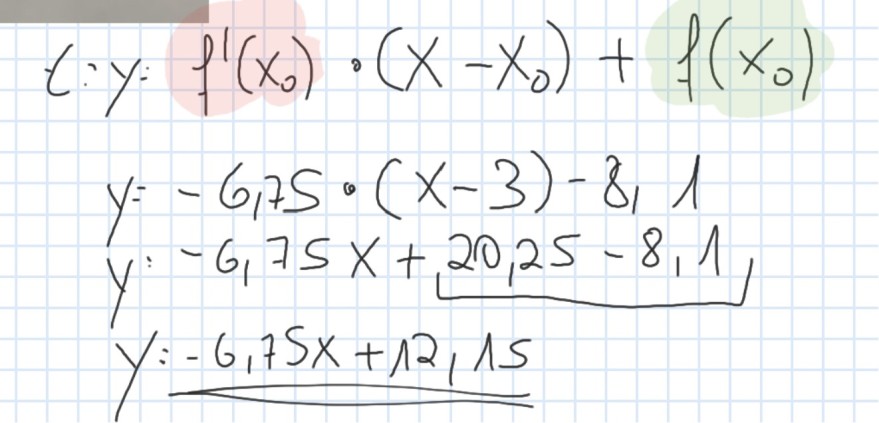 t: y= f'(x₀) · (x - x₀) + f(x₀)
y= -6,75 · (x - 3) - 8,1
y= -6,75x + 20,25 - 8,1
y= -6,75x + 12,15